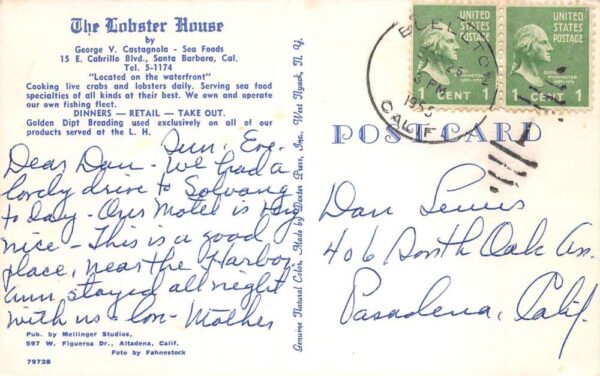 The Lobster House
by
George V. Castagnola - Sea Foods
15 E. Cabrillo Blvd., Santa Barbara, Cal.
Tel. 5-1174
"Located on the waterfront"
Cooking live crabs and lobsters daily. Serving sea food
specialties of all kinds at their best. We own and operate
our own fishing fleet.
DINNERS — RETAIL — TAKE OUT.
Golden Dipt Breading used exclusively on all of our
products served at the L. H.
Sun. Eve.
Dear Dan - We had a
lovely drive to Solvang
today - Our Motel is very
nice - This is a good
place, near the Harbor
Ann stayed all night
with us - Lon - Mother
Pub. by Mellinger Studios,
597 W. Figueroa Dr., Altadena, Calif.
Foto by Fahnestock
79728
Genuine Natural Color. Made by Dexter Press, Inc., West Nyack, N. Y.
POST CARD
BUELLTO
PM
1955
CALIF.
UNITED
STATES
POSTAGE
GEORGE
WASHINGTON
1 CENT 1
UNITED
STATES
POSTAGE
GEORGE
WASHINGTON
1 CENT 1
Dan Lewis
406 South Oak Av.
Pasadena, Calif.